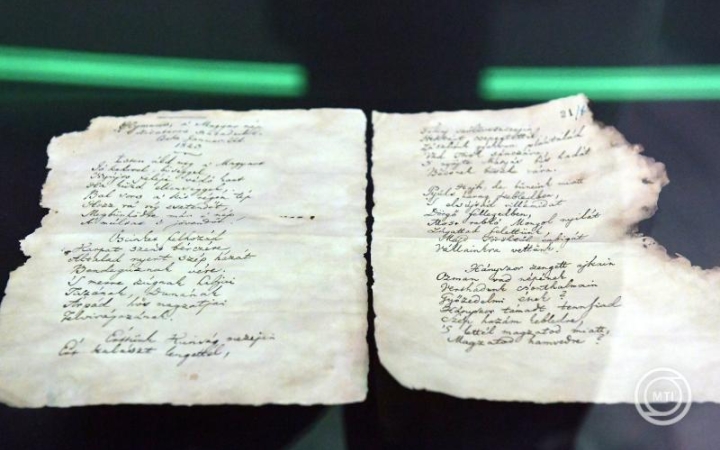 Hymnus, a' Magyar nép
zivataros századaiból
1823
Isten áldd meg a' Magyart
Jó kedvvel, bőséggel,
Nyújts feléje védő kart
Ha küzd ellenséggel;
Bal sors a' kit régen tép
Hozz rá víg esztendőt,
Megbűnhödte már e' nép
A' multat 's jövendőt!
felhozád
Kárpát szent bérczére,
Általad nyert szép hazát
Bendegúznak vére.
'S merre zúgnak habjai
Tiszának Dunának
Árpád hős magzatjai
Felvirágozának.
Értünk Kunság mezein
Ért kalászt lengettél,
21/
csepegtettél.
Zászlónk plántáltad
Vad török sánczára,
'S nyögte Mátyás bús hadát
Bécsnek büszke vára.
Hajh, de bűneink miatt
Gyúlt harag kebledben,
'S elsújtád villámidat
Dörgő fellegedben,
Most rabló Mongol nyilát
Zúgattad felettünk,
Majd töröktől rabigát
Vállainkra vettünk.
Hányszor zengett ajkain
Ozman vad népének
Vert hadunk csonthalmain
Győzedelmi ének?
Hányszor támadt tennfiad
Szép hazám kebledre,
'S lettél magzatod miatt,
Magzatod hamvedre?
MTI